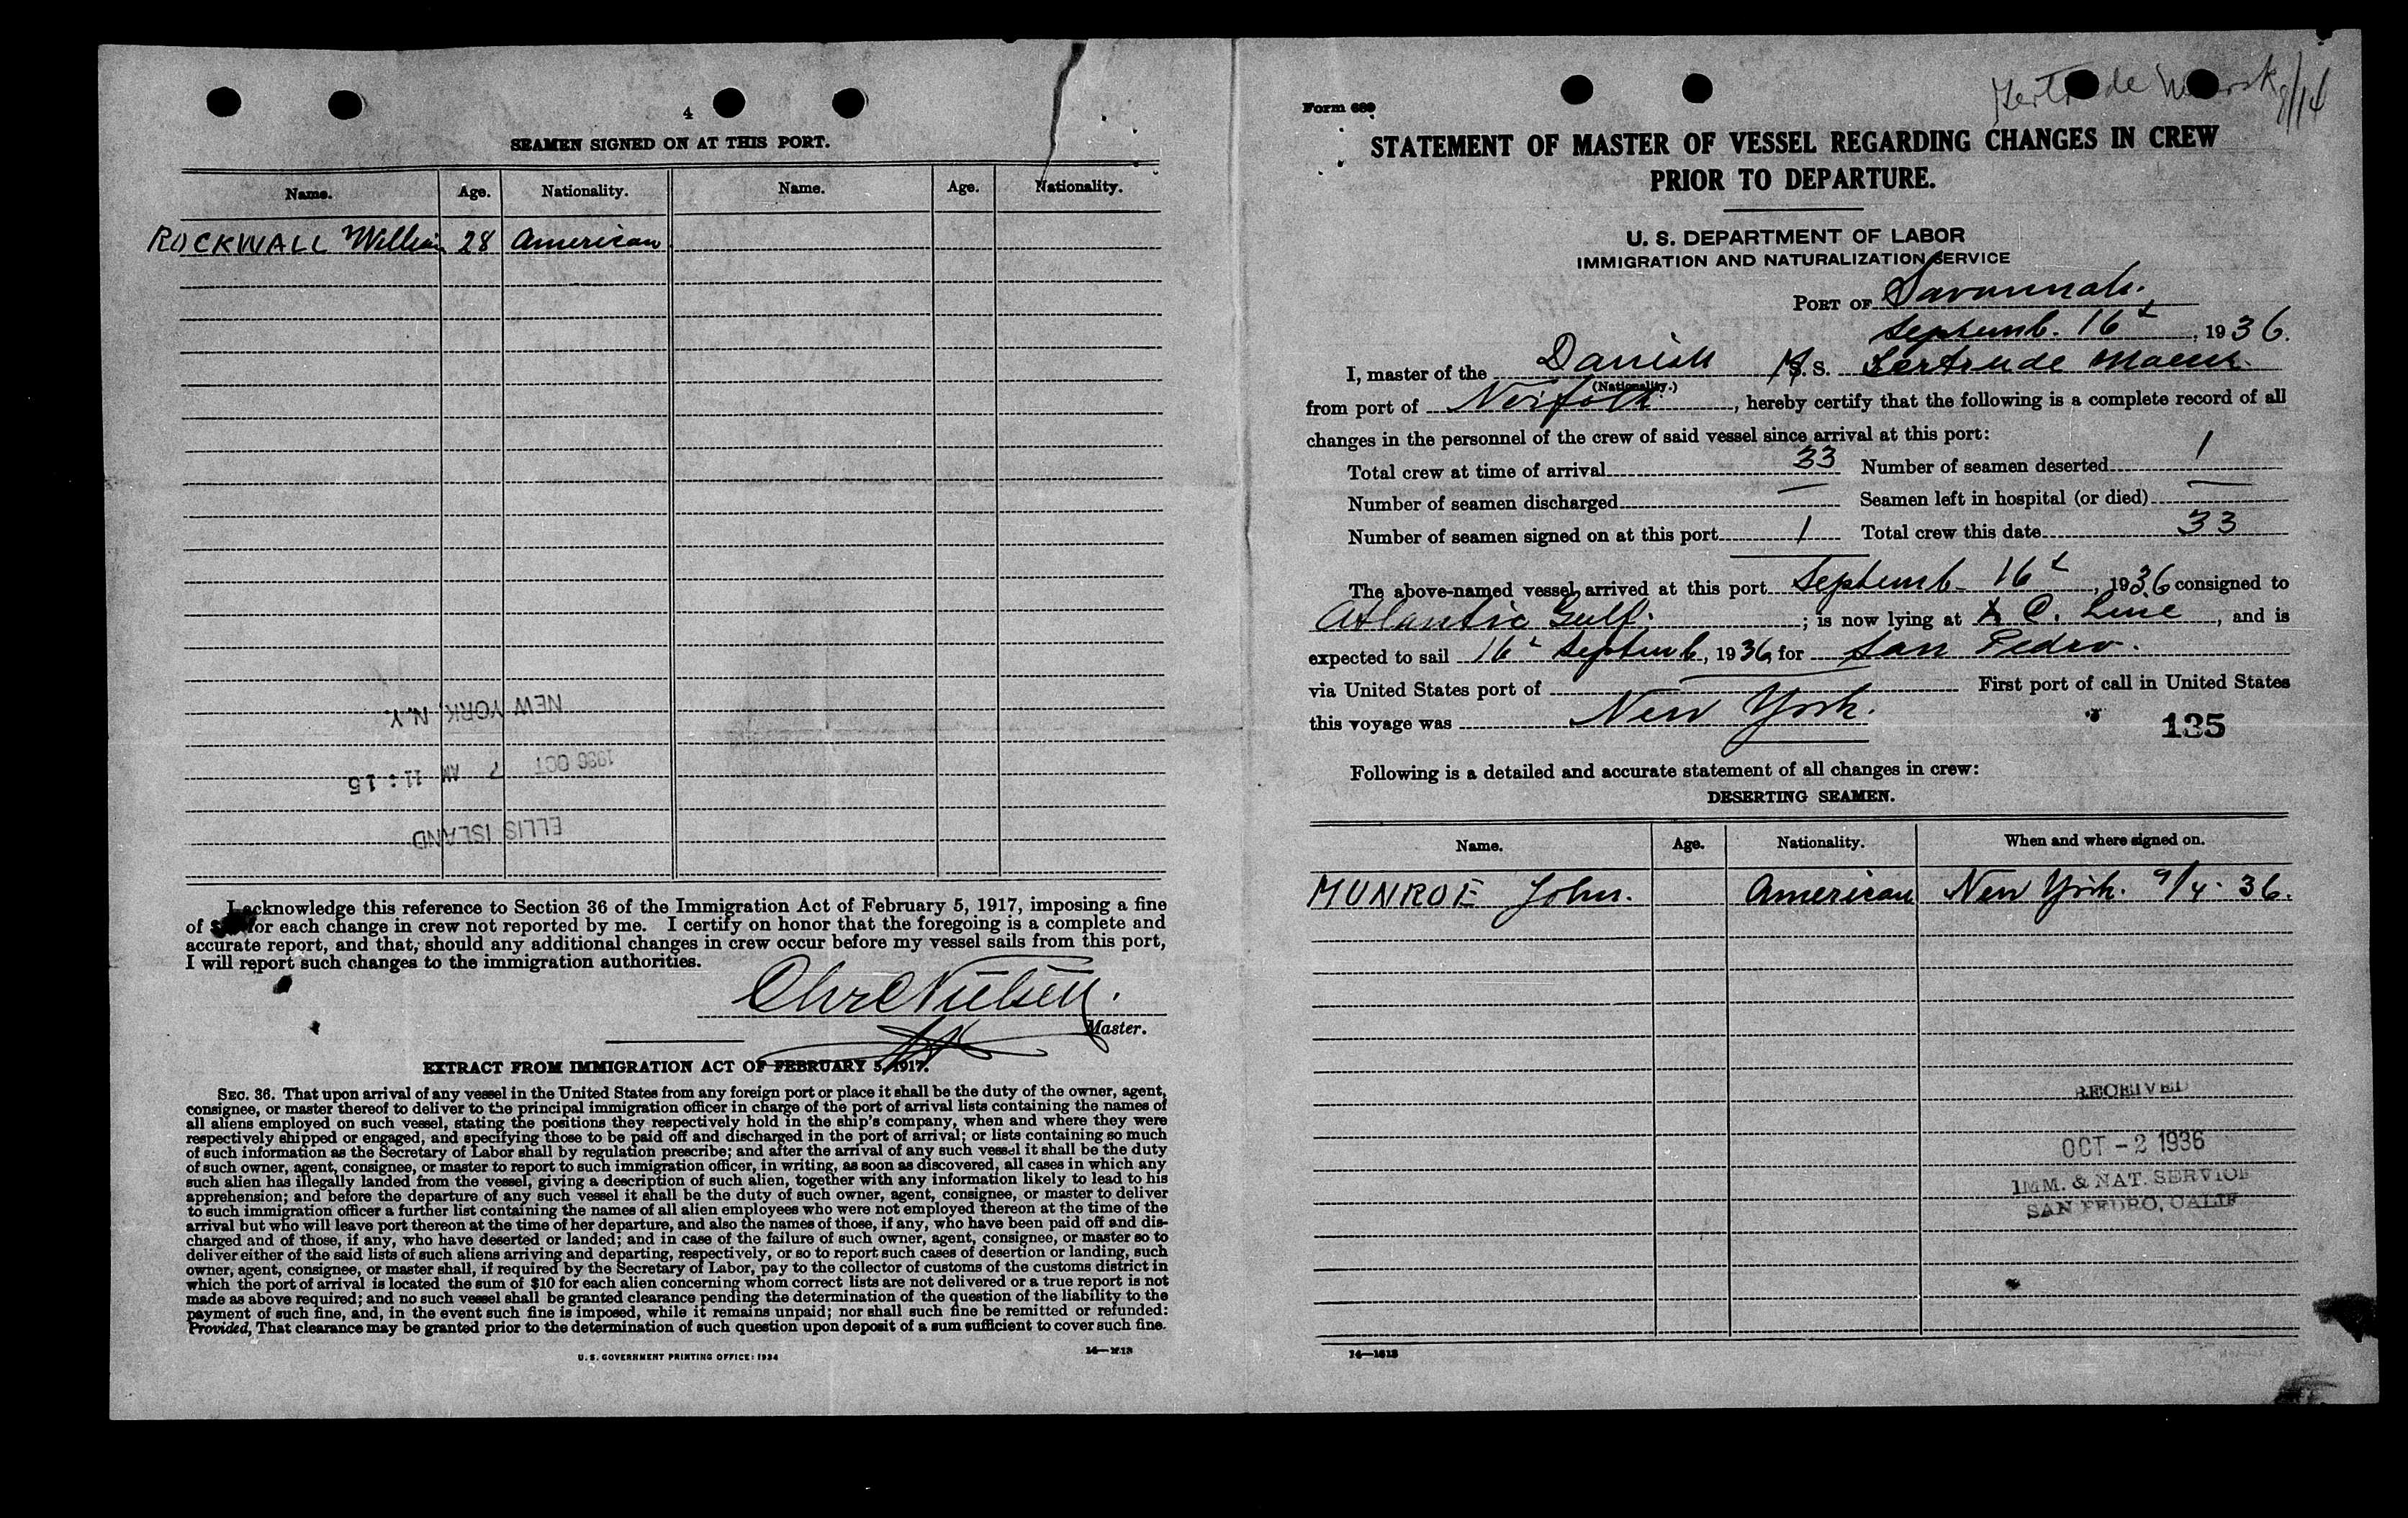 4
SEAMEN SIGNED ON AT THIS PORT.
Name. Age. Nationality. Name. Age. Nationality.
ROCKWALL William 28 American
NEW YORK, N.Y.
1936 OCT 7 AM 11:15
ELLIS ISLAND
I acknowledge this reference to Section 36 of the Immigration Act of February 5, 1917, imposing a fine
of for each change in crew not reported by me. I certify on honor that the foregoing is a complete and
accurate report, and that, should any additional changes in crew occur before my vessel sails from this port,
I will report such changes to the immigration authorities.
Chr Nielsen.
Master.
EXTRACT FROM IMMIGRATION ACT OF FEBRUARY 5, 1917.
SEC. 36. That upon arrival of any vessel in the United States from any foreign port or place it shall be the duty of the owner, agent,
consignee, or master thereof to deliver to the principal immigration officer in charge of the port of arrival lists containing the names of
all aliens employed on such vessel, stating the positions they respectively hold in the ship's company, when and where they were
respectively shipped or engaged, and specifying those to be paid off and discharged in the port of arrival; or lists containing so much
of such information as the Secretary of Labor shall by regulation prescribe; and after the arrival of any such vessel it shall be the duty
of such owner, agent, consignee, or master to report to such immigration officer, in writing, as soon as discovered, all cases in which any
such alien has illegally landed from the vessel, giving a description of such alien, together with any information likely to lead to his
apprehension; and before the departure of any such vessel it shall be the duty of such owner, agent, consignee, or master to deliver
to such immigration officer a further list containing the names of all alien employees who were not employed thereon at the time of the
arrival but who will leave port thereon at the time of her departure, and also the names of those, if any, who have been paid off and dis-
charged and of those, if any, who have deserted or landed; and in case of the failure of such owner, agent, consignee, or master so to
deliver either of the said lists of such aliens arriving and departing, respectively, or so to report such cases of desertion or landing, such
owner, agent, consignee, or master shall, if required by the Secretary of Labor, pay to the collector of customs of the customs district in
which the port of arrival is located the sum of $10 for each alien concerning whom correct lists are not delivered or a true report is not
made as above required; and no such vessel shall be granted clearance pending the determination of the question of the liability to the
payment of such fine, and, in the event such fine is imposed, while it remains unpaid; nor shall such fine be remitted or refunded:
Provided, That clearance may be granted prior to the determination of such question upon deposit of a sum sufficient to cover such fine.
U.S. GOVERNMENT PRINTING OFFICE: 1934
14—1613
Gertrude Maersk 9/14
Form 689
STATEMENT OF MASTER OF VESSEL REGARDING CHANGES IN CREW
PRIOR TO DEPARTURE.
U. S. DEPARTMENT OF LABOR
IMMIGRATION AND NATURALIZATION SERVICE
PORT OF Savannah.
Septemb. 16, 1936.
I, master of the Danish M. S. Gertrude Maersk.
(Nationality.)
from port of Norfolk, hereby certify that the following is a complete record of all
changes in the personnel of the crew of said vessel since arrival at this port:
Total crew at time of arrival 33 Number of seamen deserted 1
Number of seamen discharged — Seamen left in hospital (or died) —
Number of seamen signed on at this port 1 Total crew this date 33
The above-named vessel arrived at this port Septemb 16, 1936 consigned to
Atlantic Gulf.; is now lying at A C. Line, and is
expected to sail 16 Septemb, 1936, for San Pedro.
via United States port of — First port of call in United States
this voyage was New York.
135
Following is a detailed and accurate statement of all changes in crew:
DESERTING SEAMEN.
Name. Age. Nationality. When and where signed on.
MUNROE John. American New York. 9/4-36.
RECEIVED
OCT -2 1936
IMM. & NAT. SERVICE
SAN PEDRO, CALIF
14—1613